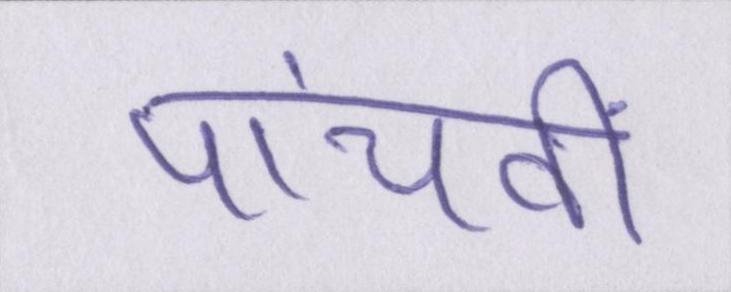 पांचवीं